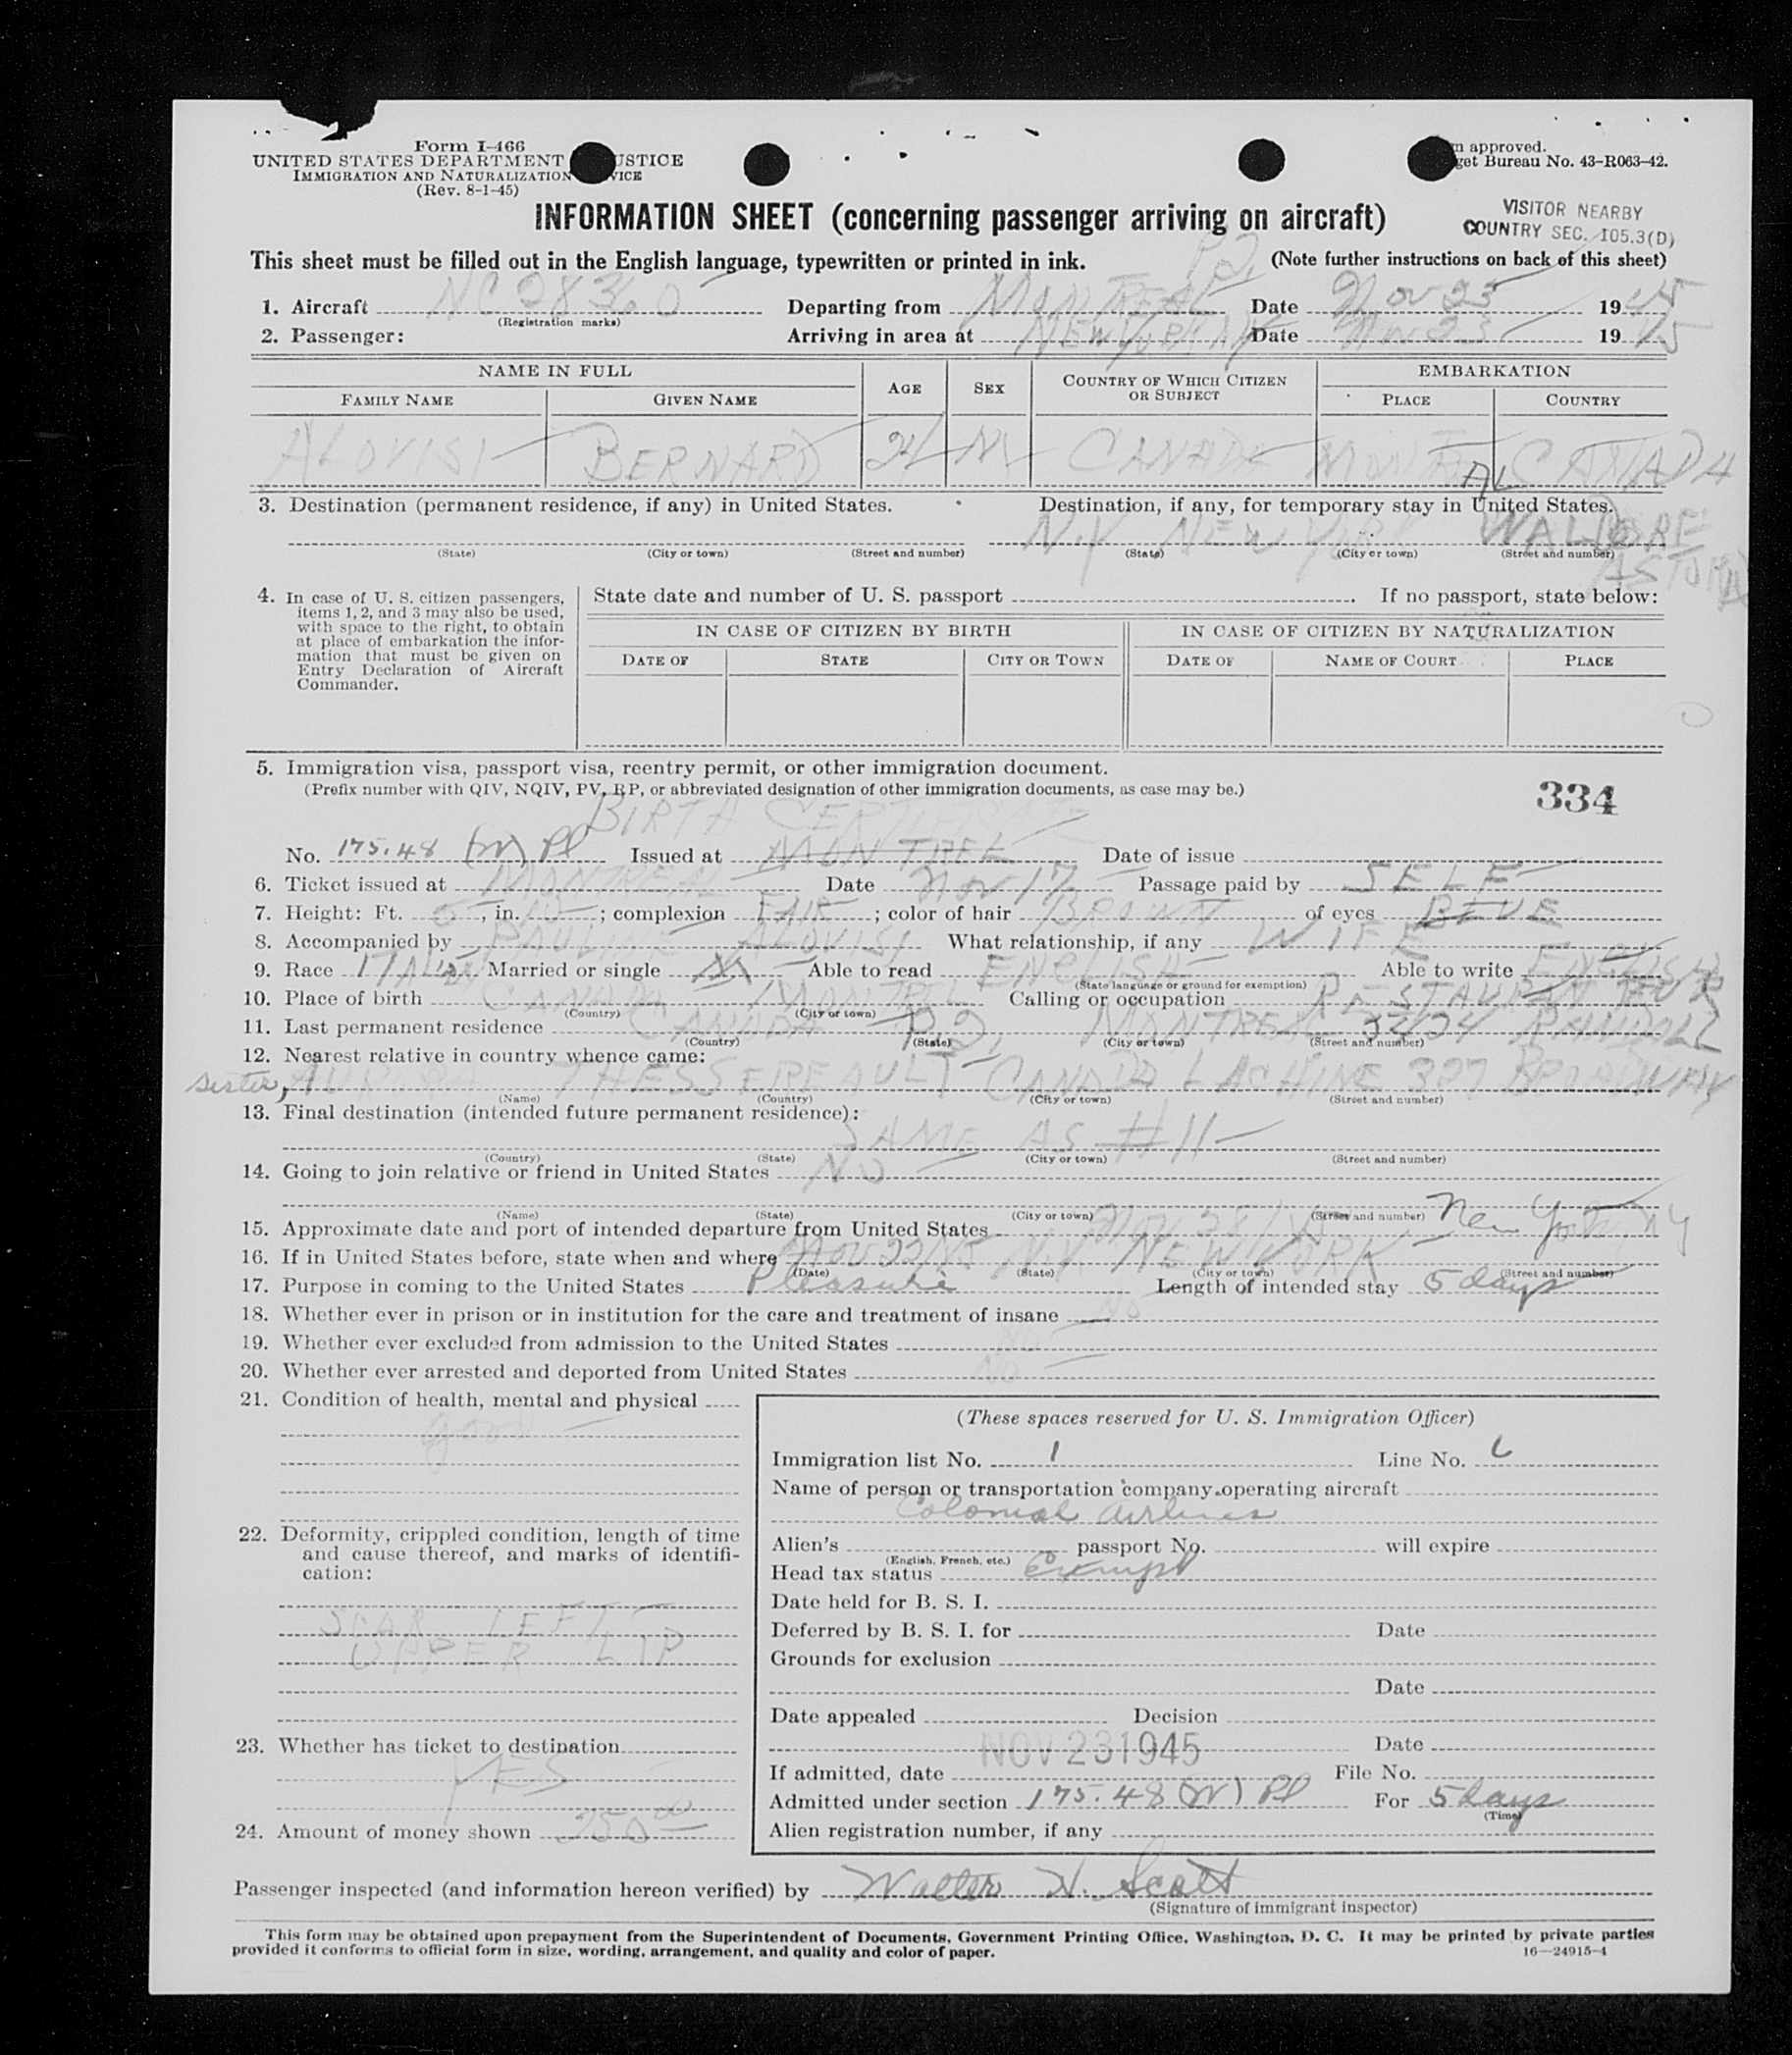 Form I-466
UNITED STATES DEPARTMENT USTICE
IMMIGRATION AND NATURALIZATION VICE
(Rev. 8-1-45)
n approved.
get Bureau No. 43-R063-42.
INFORMATION SHEET (concerning passenger arriving on aircraft)
VISITOR NEARBY
COUNTRY SEC. 105.3(D)
This sheet must be filled out in the English language, typewritten or printed in ink.
(Note further instructions on back of this sheet)
1. Aircraft NC 28360 Departing from MONTREAL P2. Date Nov 23 1945
(Registration marks)
2. Passenger: Arriving in area at NEW YORK NY Date Nov 23 1945
NAME IN FULL AGE SEX COUNTRY OF WHICH CITIZEN OR SUBJECT EMBARKATION
FAMILY NAME GIVEN NAME PLACE COUNTRY
ALOVISI BERNARD M CANADA CANADA
3. Destination (permanent residence, if any) in United States. Destination, if any, for temporary stay in United States.
N.Y NEW YORK WALDORF ASTORIA
(State) (City or town) (Street and number) (State) (City or town) (Street and number)
4. In case of U. S. citizen passengers, items 1, 2, and 3 may also be used, with space to the right, to obtain at place of embarkation the information that must be given on Entry Declaration of Aircraft Commander.
State date and number of U. S. passport . If no passport, state below:
IN CASE OF CITIZEN BY BIRTH IN CASE OF CITIZEN BY NATURALIZATION
DATE OF STATE CITY OR TOWN DATE OF NAME OF COURT PLACE
5. Immigration visa, passport visa, reentry permit, or other immigration document.
(Prefix number with QIV, NQIV, PV, RP, or abbreviated designation of other immigration documents, as case may be.)
334
BIRTH CERTIFICATE
No. 175.48 (W) Pl Issued at MONTREL Date of issue
6. Ticket issued at MONTREAL Date Nov 17 Passage paid by SELF
7. Height: Ft. 5, in. 10; complexion FAIR; color of hair BROWN of eyes BLUE
8. Accompanied by PAULINE ALOVISI What relationship, if any WIFE
9. Race ITALIAN Married or single M Able to read ENGLISH Able to write ENGLISH
(State language or ground for exemption)
10. Place of birth CANADA MONTREL Calling or occupation RESTAURANTEUR
(Country) (City or town)
11. Last permanent residence CANADA P2. MONTREAL RANDALL
(Country) (State) (City or town) (Street and number)
12. Nearest relative in country whence came:
sister, THESSEREAULT CANADA LACHINE 327 BROADWAY
(Name) (Country) (City or town) (Street and number)
13. Final destination (intended future permanent residence):
SAME AS #11
(Country) (State) (City or town) (Street and number)
14. Going to join relative or friend in United States NO
(Name) (State) (City or town) (Street and number)
15. Approximate date and port of intended departure from United States Nov 28/45 New York NY
16. If in United States before, state when and where Nov N.Y NEW YORK
(Date) (State) (City or town) (Street and number)
17. Purpose in coming to the United States Pleasure Length of intended stay 5 days
18. Whether ever in prison or in institution for the care and treatment of insane No
19. Whether ever excluded from admission to the United States No
20. Whether ever arrested and deported from United States No
21. Condition of health, mental and physical
good
22. Deformity, crippled condition, length of time and cause thereof, and marks of identification:
SCAR LEFT
UPPER LIP
23. Whether has ticket to destination
YES
24. Amount of money shown 250.00
(These spaces reserved for U. S. Immigration Officer)
Immigration list No. 1 Line No. 6
Name of person or transportation company operating aircraft
Colonial Airlines
Alien's passport No. will expire
(English, French, etc.)
Head tax status Exempt
Date held for B. S. I.
Deferred by B. S. I. for Date
Grounds for exclusion
Date
Date appealed Decision
NOV 23 1945 Date
If admitted, date File No.
Admitted under section 175.48 (W) Pl For 5 days
(Time)
Alien registration number, if any
Passenger inspected (and information hereon verified) by Walter H. Scott
(Signature of immigrant inspector)
This form may be obtained upon prepayment from the Superintendent of Documents, Government Printing Office, Washington, D. C. It may be printed by private parties
provided it conforms to official form in size, wording, arrangement, and quality and color of paper.
16—24915-4